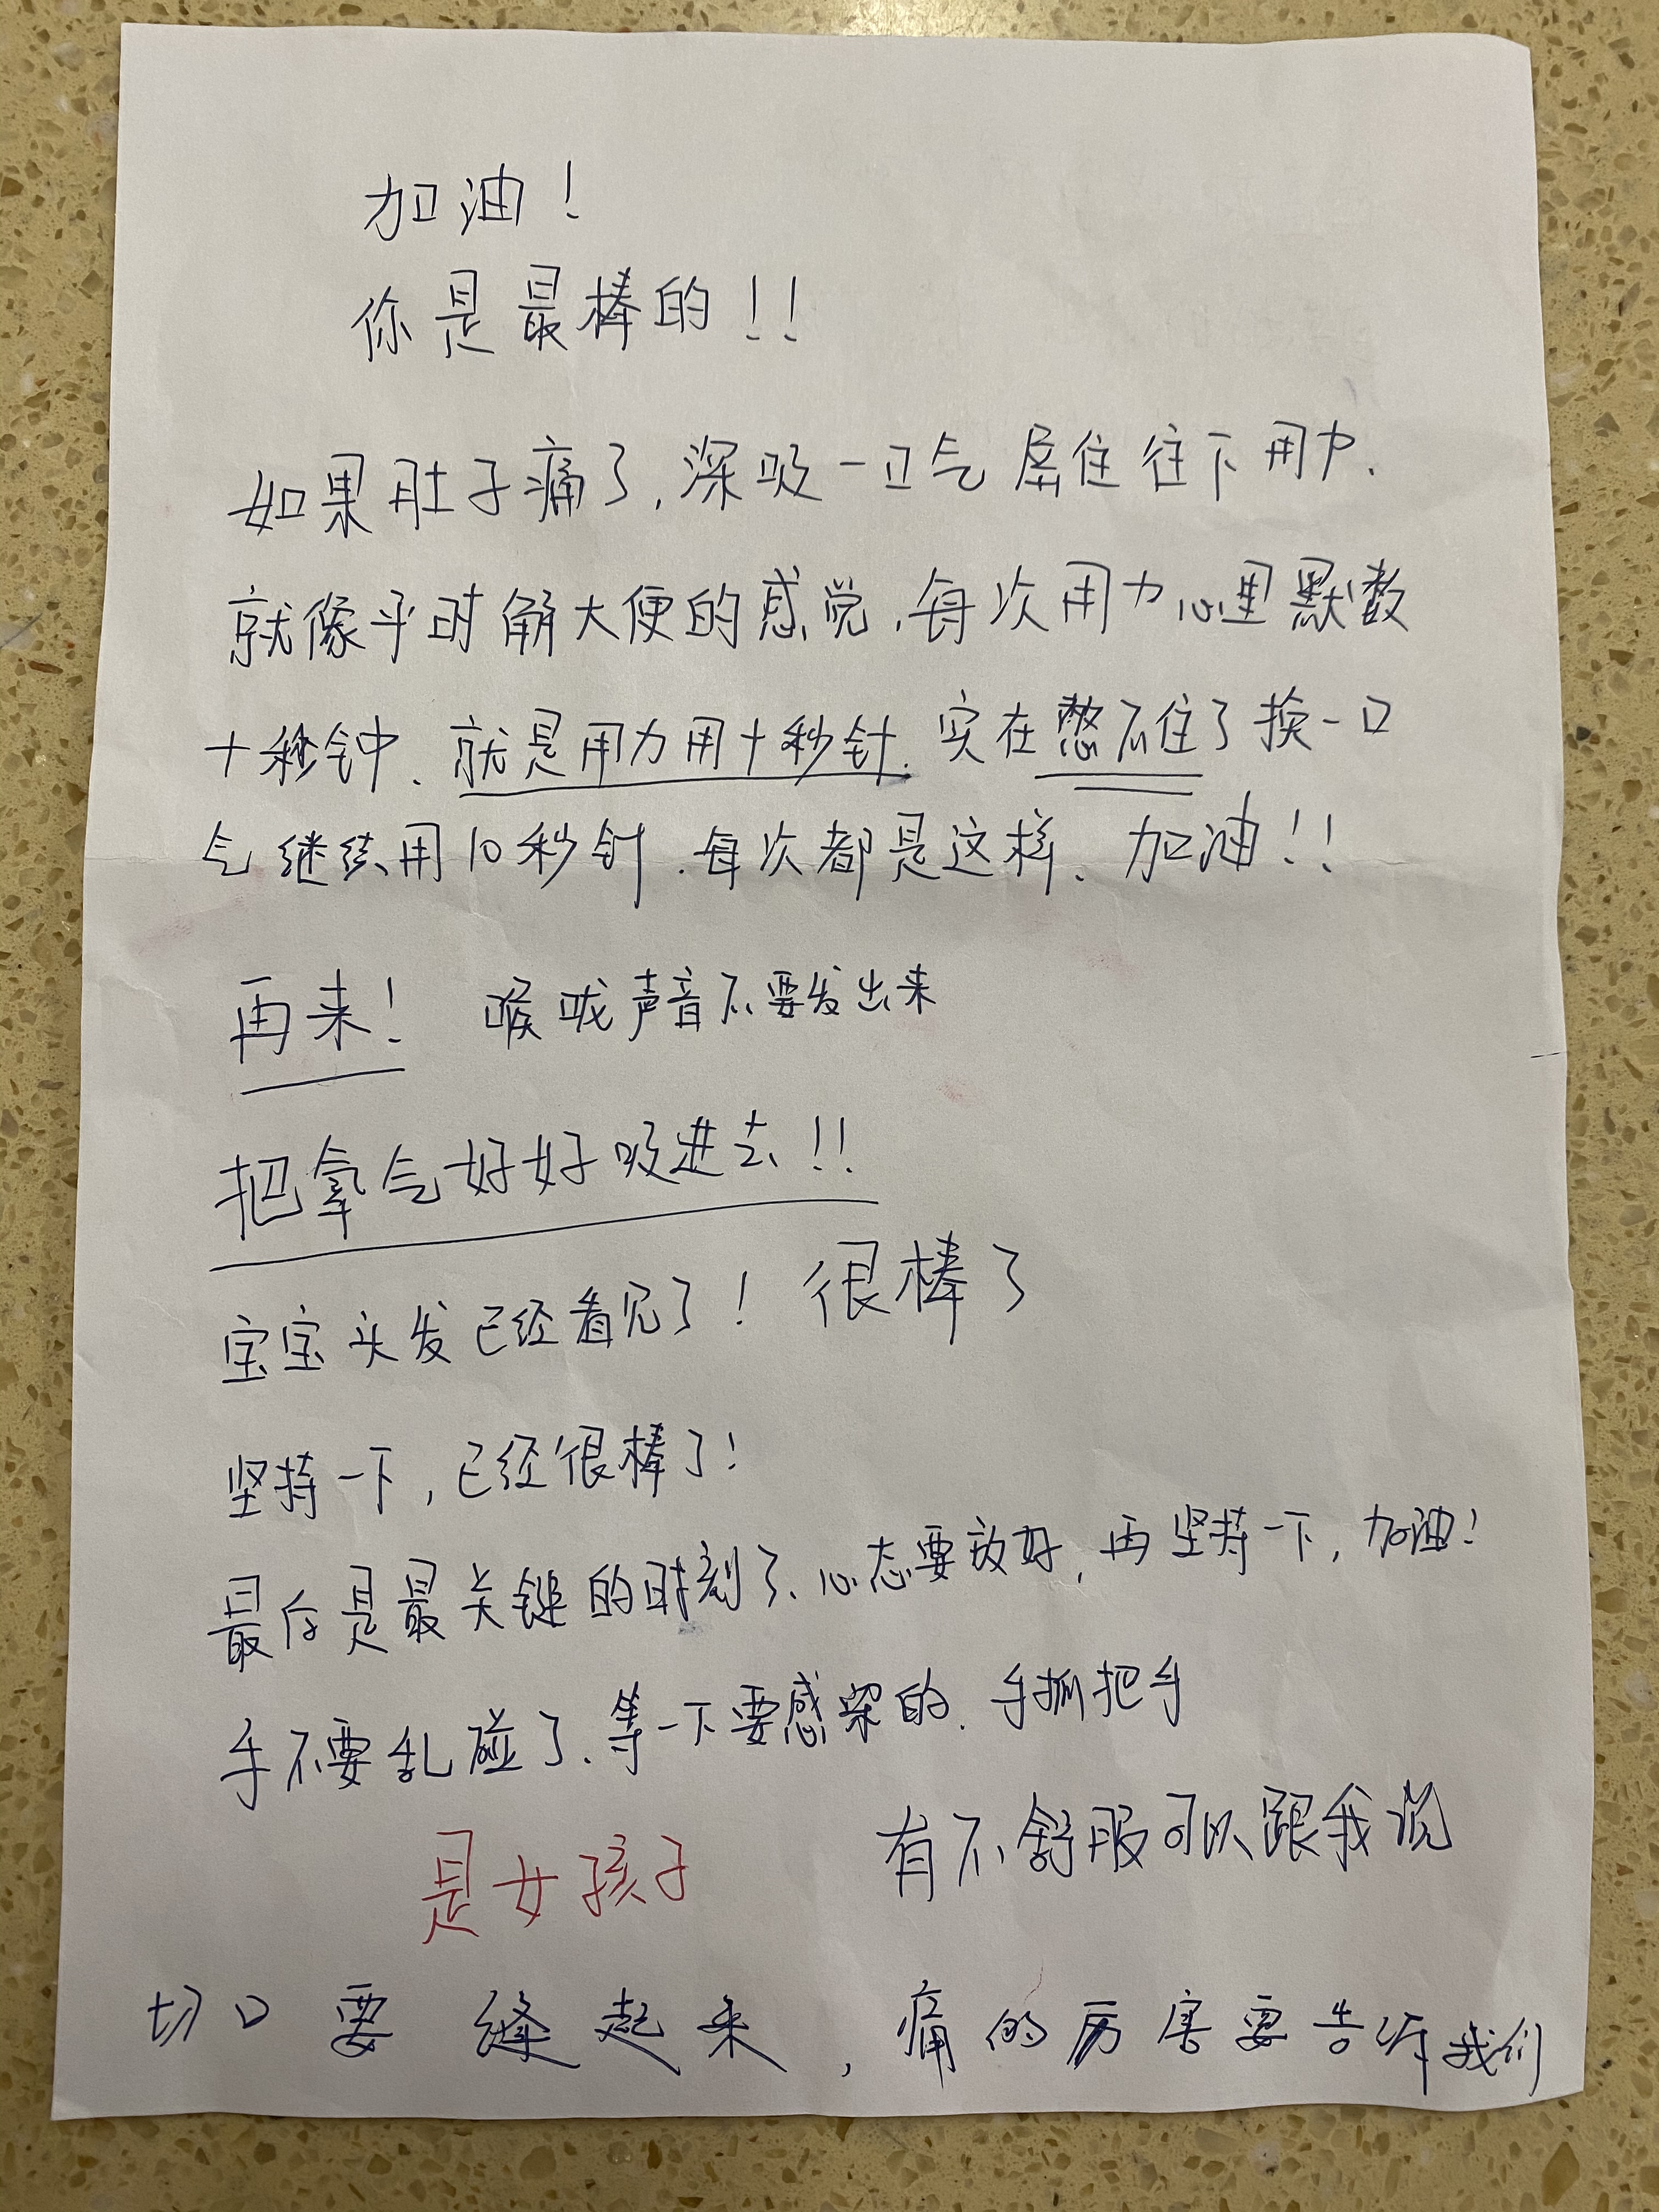 加油！
你是最棒的！！
如果肚子痛了，深吸一口气屏住往下用力．
就像平时解大便的感觉．每次用力心里默数
十秒钟、就是用力用十秒钟．实在憋不住了换一口
气继续用10秒钟．每次都是这样、加油！！
再来！ 喉咙声音不要发出来
把氧气好好吸进去！！
宝宝头发已经看见了！ 很棒了
坚持一下，已经很棒了！
最后是最关键的时刻了、心态要放好，再坚持一下，加油！
手不要乱碰了、等一下要感染的．手抓把手
有不舒服可以跟我说
是女孩子
切口要缝起来，痛的厉害要告诉我们